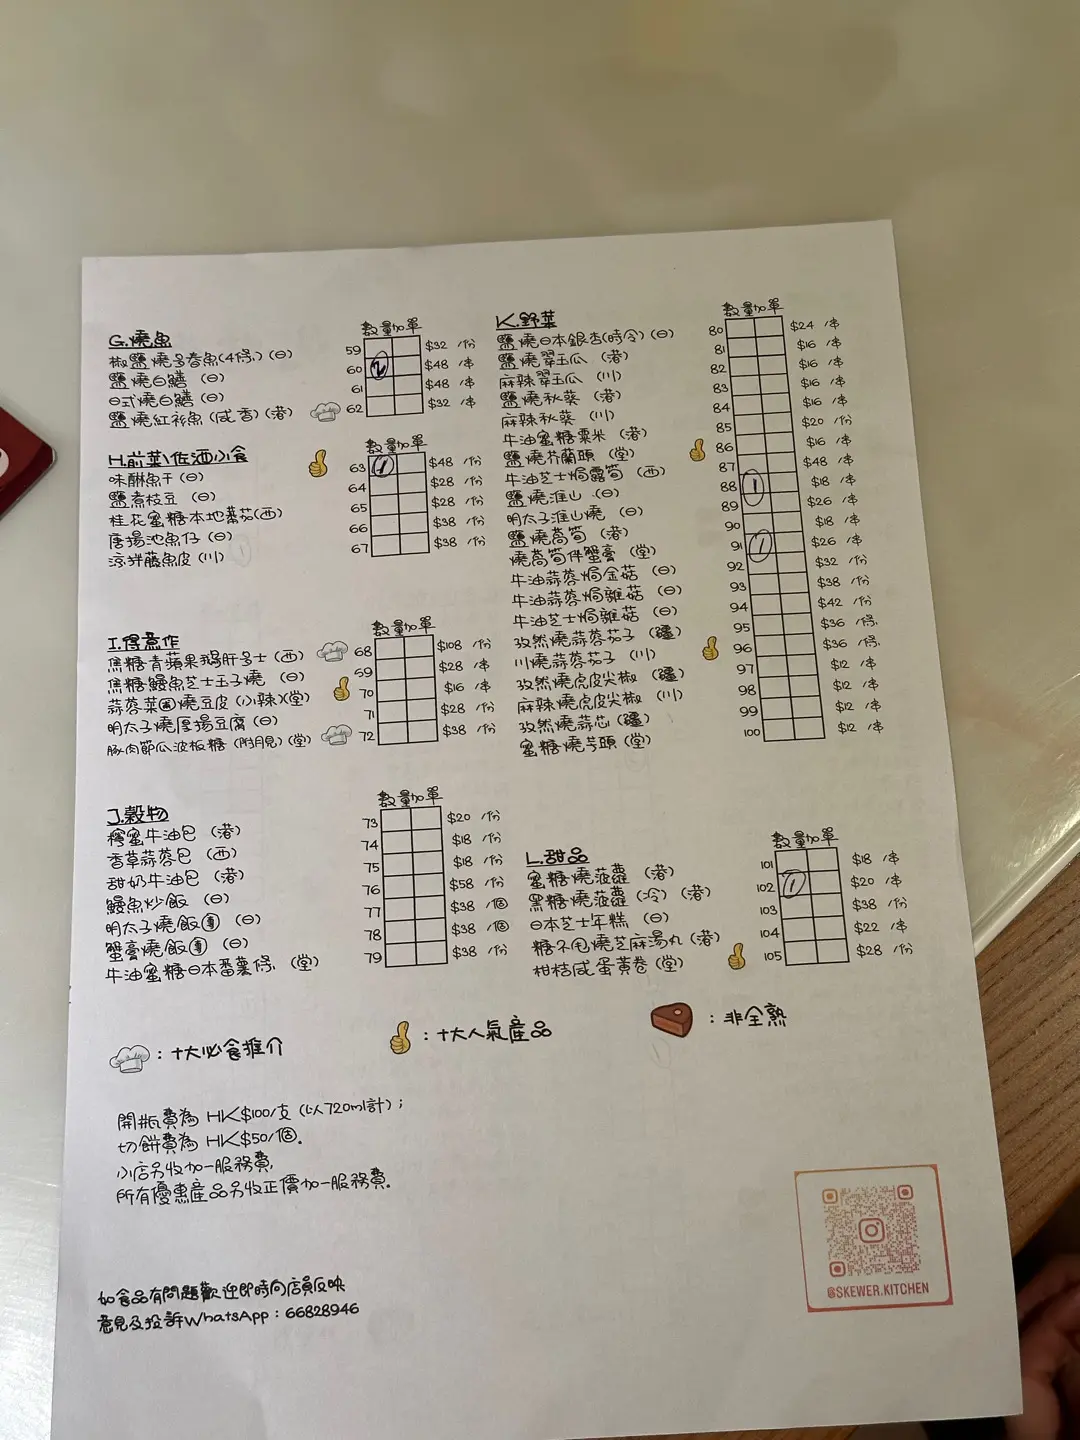 G.燒魚
數量加單
椒鹽燒多春魚(4條) (日)
59 $32 /份
鹽燒白鱔 (日)
60 2 $48 /串
日式燒白鱔 (日)
61 $48 /串
鹽燒紅衫魚(咸香) (港)
62 $32 /串
H.前菜\佐酒小食
數量加單
味醂魚干 (日)
63 1 $48 /份
鹽煮枝豆 (日)
64 $28 /份
桂花蜜糖本地蕃茄(西)
65 $28 /份
唐揚池魚仔 (日)
66 $38 /份
涼拌藤魚皮 (川)
67 $38 /份
I.得意作
數量加單
焦糖青蘋果鵝肝多士 (西)
68 $108 /份
焦糖鰻魚芝士玉子燒 (日)
59 $28 /串
蒜蓉菜圃燒豆皮 (小辣)(堂)
70 $16 /串
明太子燒厚揚豆腐 (日)
71 $28 /份
豚肉節瓜波板糖 (附月見) (堂)
72 $38 /份
J.穀物
數量加單
檸蜜牛油包 (港)
73 $20 /份
香草蒜蓉包 (西)
74 $18 /份
甜奶牛油包 (港)
75 $18 /份
鰻魚炒飯 (日)
76 $58 /份
明太子燒飯團 (日)
77 $38 /個
蟹膏燒飯團 (日)
78 $38 /個
牛油蜜糖日本番薯條 (堂)
79 $38 /份
K.野菜
數量加單
鹽燒日本銀杏(時令) (日)
80 $24 /串
鹽燒翠玉瓜 (港)
81 $16 /串
麻辣翠玉瓜 (川)
82 $16 /串
鹽燒秋葵 (港)
83 $16 /串
麻辣秋葵 (川)
84 $16 /串
牛油蜜糖粟米 (港)
85 $20 /份
鹽燒芥蘭頭 (堂)
86 $16 /串
牛油芝士焗露筍 (西)
87 $48 /串
鹽燒淮山 (日)
88 1 $18 /串
明太子淮山燒 (日)
89 $26 /串
鹽燒萵筍 (港)
90 $18 /串
燒萵筍伴蟹膏 (堂)
91 1 $26 /串
牛油蒜蓉焗金菇 (日)
92 $32 /份
牛油蒜蓉焗雜菇 (日)
93 $38 /份
牛油芝士焗雜菇 (日)
94 $42 /份
孜然燒蒜蓉茄子 (疆)
95 $36 /條
川燒蒜蓉茄子 (川)
96 $36 /條
孜然燒虎皮尖椒 (疆)
97 $12 /串
麻辣燒虎皮尖椒 (川)
98 $12 /串
孜然燒蒜芯 (疆)
99 $12 /串
蜜糖燒芋頭 (堂)
100 $12 /串
L.甜品
數量加單
蜜糖燒菠蘿 (港)
101 $18 /串
黑糖燒菠蘿 (冷) (港)
102 1 $20 /串
日本芝士年糕 (日)
103 $38 /份
糖不甩燒芝麻湯丸 (港)
104 $22 /串
柑桔咸蛋黃卷 (堂)
105 $28 /份
：十大必食推介
：十大人氣產品
：非全熟
開瓶費為 HK$100/支 (以720ml計)；
切餅費為 HK$50/個。
小店另收加一服務費，
所有優惠產品另收正價加一服務費。
如食品有問題歡迎即時向店員反映
意見及投訴WhatsApp：66828946
@SKEWER.KITCHEN